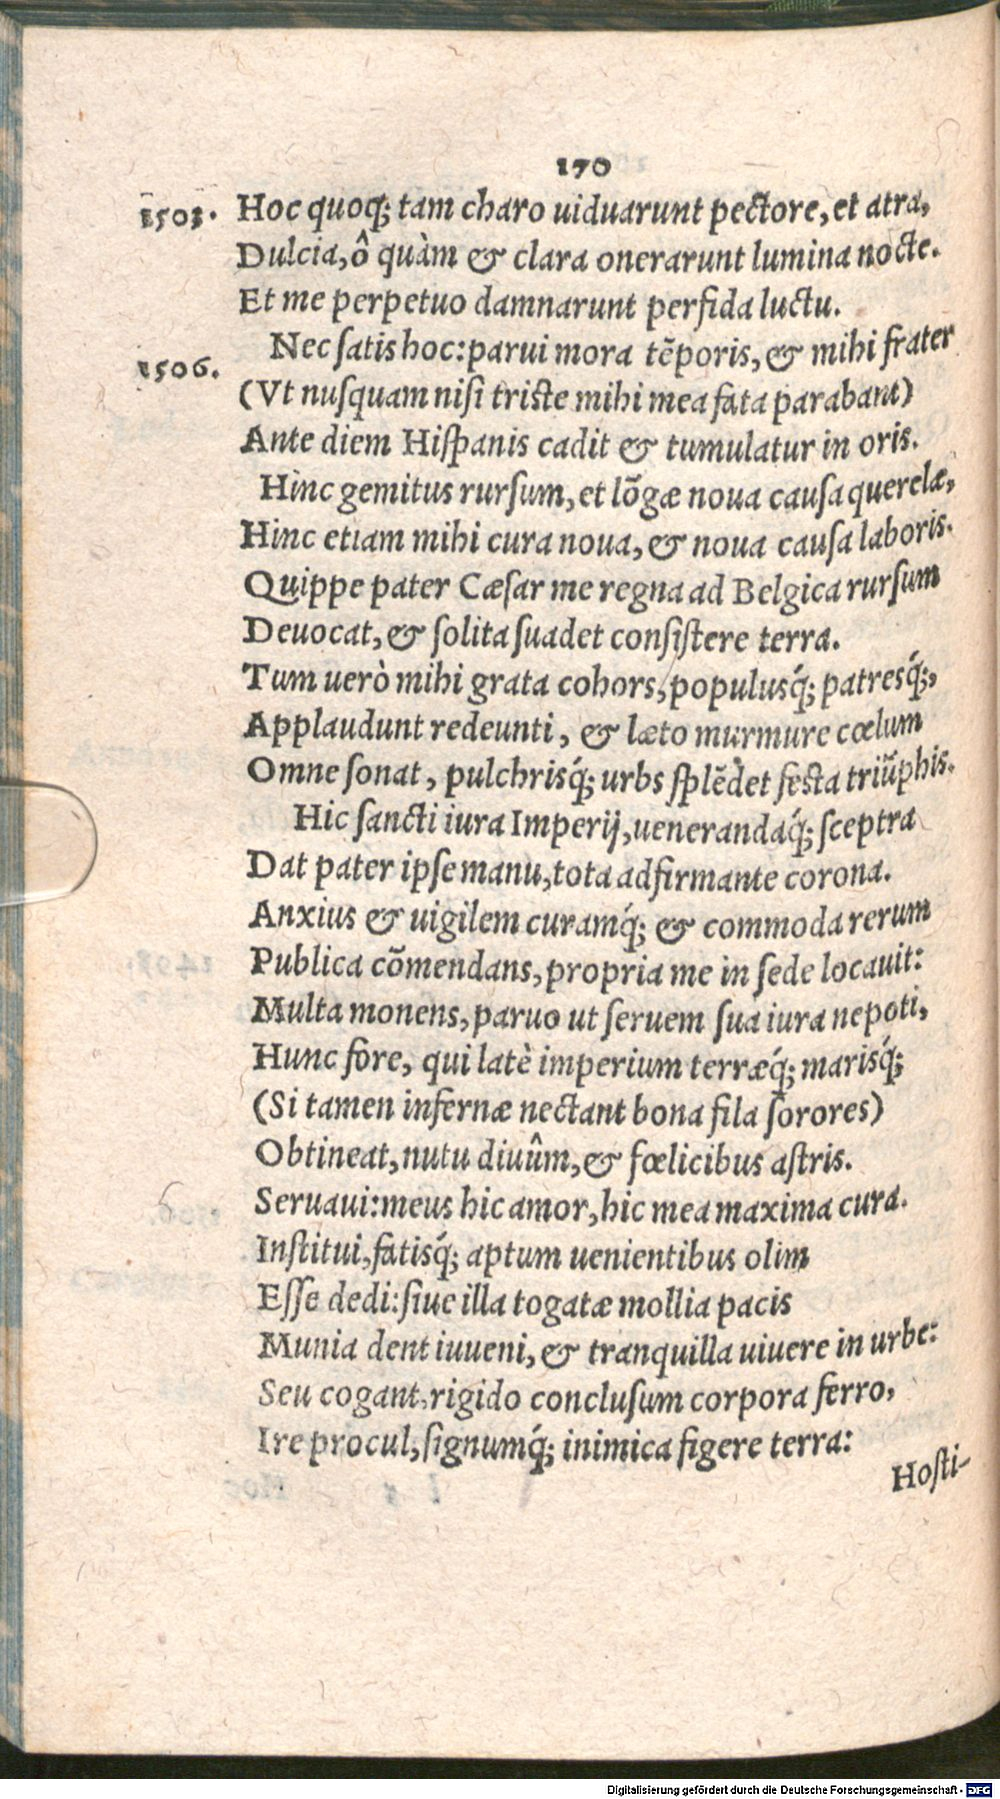 170
1503. Hoc quoq; tam charo uiduarunt pectore, et atra,
Dulcia, ô quàm & clara onerarunt lumina nocte.
Et me perpetuo damnarunt perfida luctu.
1506. Nec satis hoc: parui mora tẽporis, & mihi frater
(Vt nusquam nisi triste mihi mea fata parabant)
Ante diem Hispanis cadit & tumulatur in oris.
Hinc gemitus rursum, et lõgæ noua causa querelæ,
Hinc etiam mihi cura noua, & noua causa laboris.
Quippe pater Cæsar me regna ad Belgica rursum
Deuocat, & solita suadet consistere terra.
Tum uerò mihi grata cohors, populusq́; patresq́;,
Applaudunt redeunti, & læto murmure cœlum
Omne sonat, pulchrisq́; urbs splẽdet festa triũphis.
Hic sancti iura Imperij, uenerandaq́; sceptra
Dat pater ipse manu, tota adfirmante corona.
Anxius & uigilem curamq́; & commoda rerum
Publica cõmendans, propria me in sede locauit:
Multa monens, paruo ut seruem sua iura nepoti,
Hunc fore, qui latè imperium terræq́; marisq́;
(Si tamen infernæ nectant bona fila sorores)
Obtineat, nutu diuûm, & fœlicibus astris.
Seruaui: meus hic amor, hic mea maxima cura.
Institui, fatisq́; aptum uenientibus olim
Esse dedi: siue illa togatæ mollia pacis
Munia dent iuueni, & tranquilla uiuere in urbe:
Seu cogant, rigido conclusum corpora ferro,
Ire procul, signumq́; inimica figere terra:
Hosti-
Digitalisierung gefördert durch die Deutsche Forschungsgemeinschaft - DFG